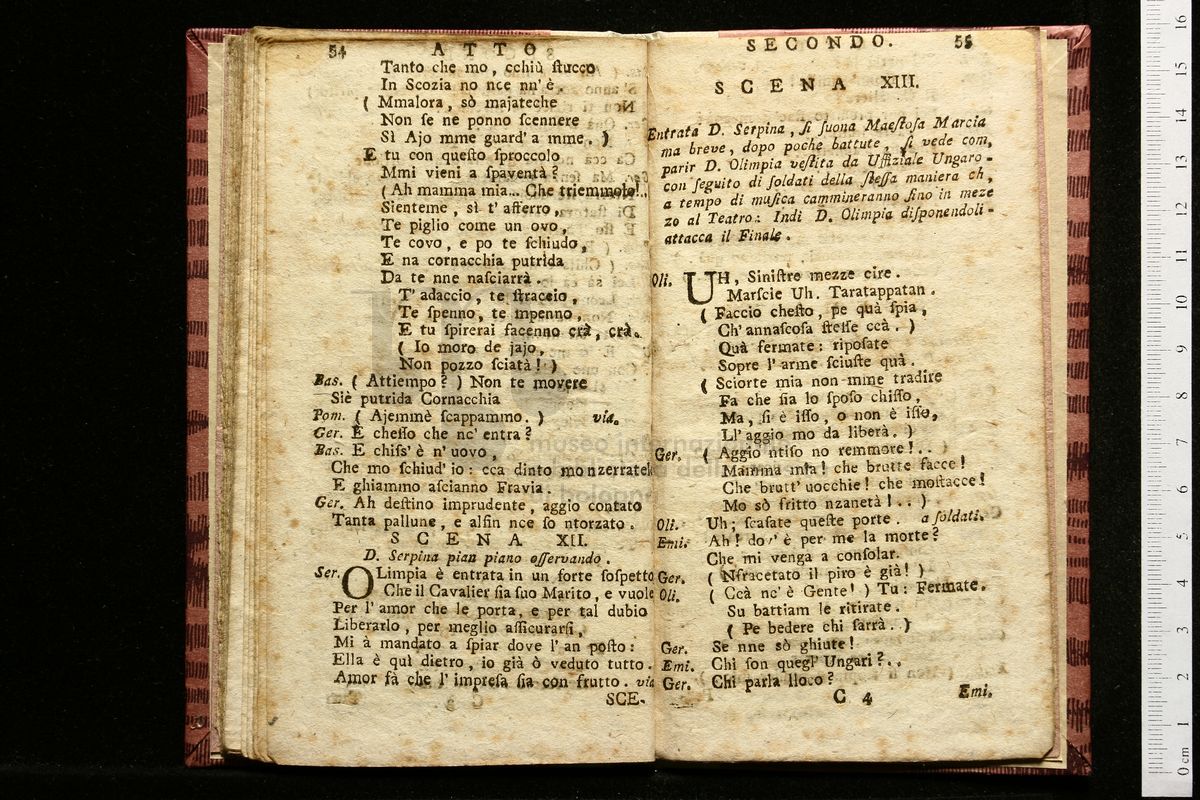 54 ATTO
Tanto che mo, cchiù ſtucco
In Scozia no nce nn' è.
( Mmalora, sò majateche
Non ſe ne ponno ſcennere
Sì Ajo mme guard' a mme. )
E tu con queſto ſproccolo
Mmi vieni a ſpaventà?
( Ah mamma mia... Che triemmole!..
Sienteme, sì t' afferro,
Te piglio come un ovo,
Te covo, e po te ſchiudo,
E na cornacchia putrida
Da te nne naſciarrà.
T' adaccio, te ſtraccio,
Te ſpenno, te mpenno,
E tu ſpirerai facenno crà, crà.
( Io moro de jajo,
Non pozzo ſciatà! )
Bas. ( Attiempo? ) Non te movere
Siè putrida Cornacchia
Pom. ( Ajemmè ſcappammo. ) via.
Ger. E cheſſo che nc' entra?
Bas. E chiſs' è n' uovo,
Che mo ſchiud' io: cca dinto monzerratele
E ghiammo aſcianno Fravia.
Ger. Ah deſtino imprudente, aggio contato
Tanta pallune, e alfin nce ſo ntorzato.
SCENA XII.
D. Serpina pian piano oſſervando.
Ser. OLimpia è entrata in un forte ſoſpetto
Che il Cavalier ſia ſuo Marito, e vuole
Per l' amor che le porta, e per tal dubio
Liberarlo, per meglio aſſicurarſi,
Mi à mandato a ſpiar dove l' an poſto:
Ella è quì dietro, io già ò veduto tutto.
Amor fà che l' impreſa ſia con frutto. via
SCE-
SECONDO. 55
SCENA XIII.
Entrata D. Serpina, ſi ſuona Maeſtoſa Marcia
ma breve, dopo poche battute, ſi vede com,
parir D. Olimpia veſtita da Uffiziale Ungaro-
con ſeguito di ſoldati della ſteſſa maniera ch,
a tempo di muſica cammineranno ſino in meze
zo al Teatro: Indi D. Olimpia diſponendoli-
attacca il Finale.
Oli. UH, Siniſtre mezze cire.
Marſcie Uh. Taratappatan.
( Faccio cheſto, pe quà ſpia,
Ch' annaſcoſa ſteſſe ccà. )
Quà fermate: ripoſate
Sopre l' arme ſciuſte quà.
( Sciorte mia non mme tradire
Fa che ſia lo ſpoſo chiſſo,
Ma, ſi è iſſo, o non è iſſo,
Ll' aggio mo da liberà. )
Ger. ( Aggio ntiſo no remmore!.. )
Mamma mia! che brutte facce!
Che brutt' uocchie! che moſtacce!
Mo sò fritto nzanetà!.. )
Oli. Uh; ſcaſate queſte porte. a ſoldati.
Emi. Ah! dov' è per me la morte?
Che mi venga a conſolar.
Ger. ( Nſracetato il piro è già! )
Oli. ( Ccà nc' è Gente! ) Tu: Fermate.
Su battiam le ritirate.
( Pe bedere chi ſarrà. )
Ger. Se nne sò ghiute!
Emi. Chi ſon quegl' Ungari?..
Ger. Chi parla lloco?
C 4 Emi.
museo internazionale
bologna
0 cm 1 2 3 4 5 6 7 8 9 10 11 12 13 14 15 16